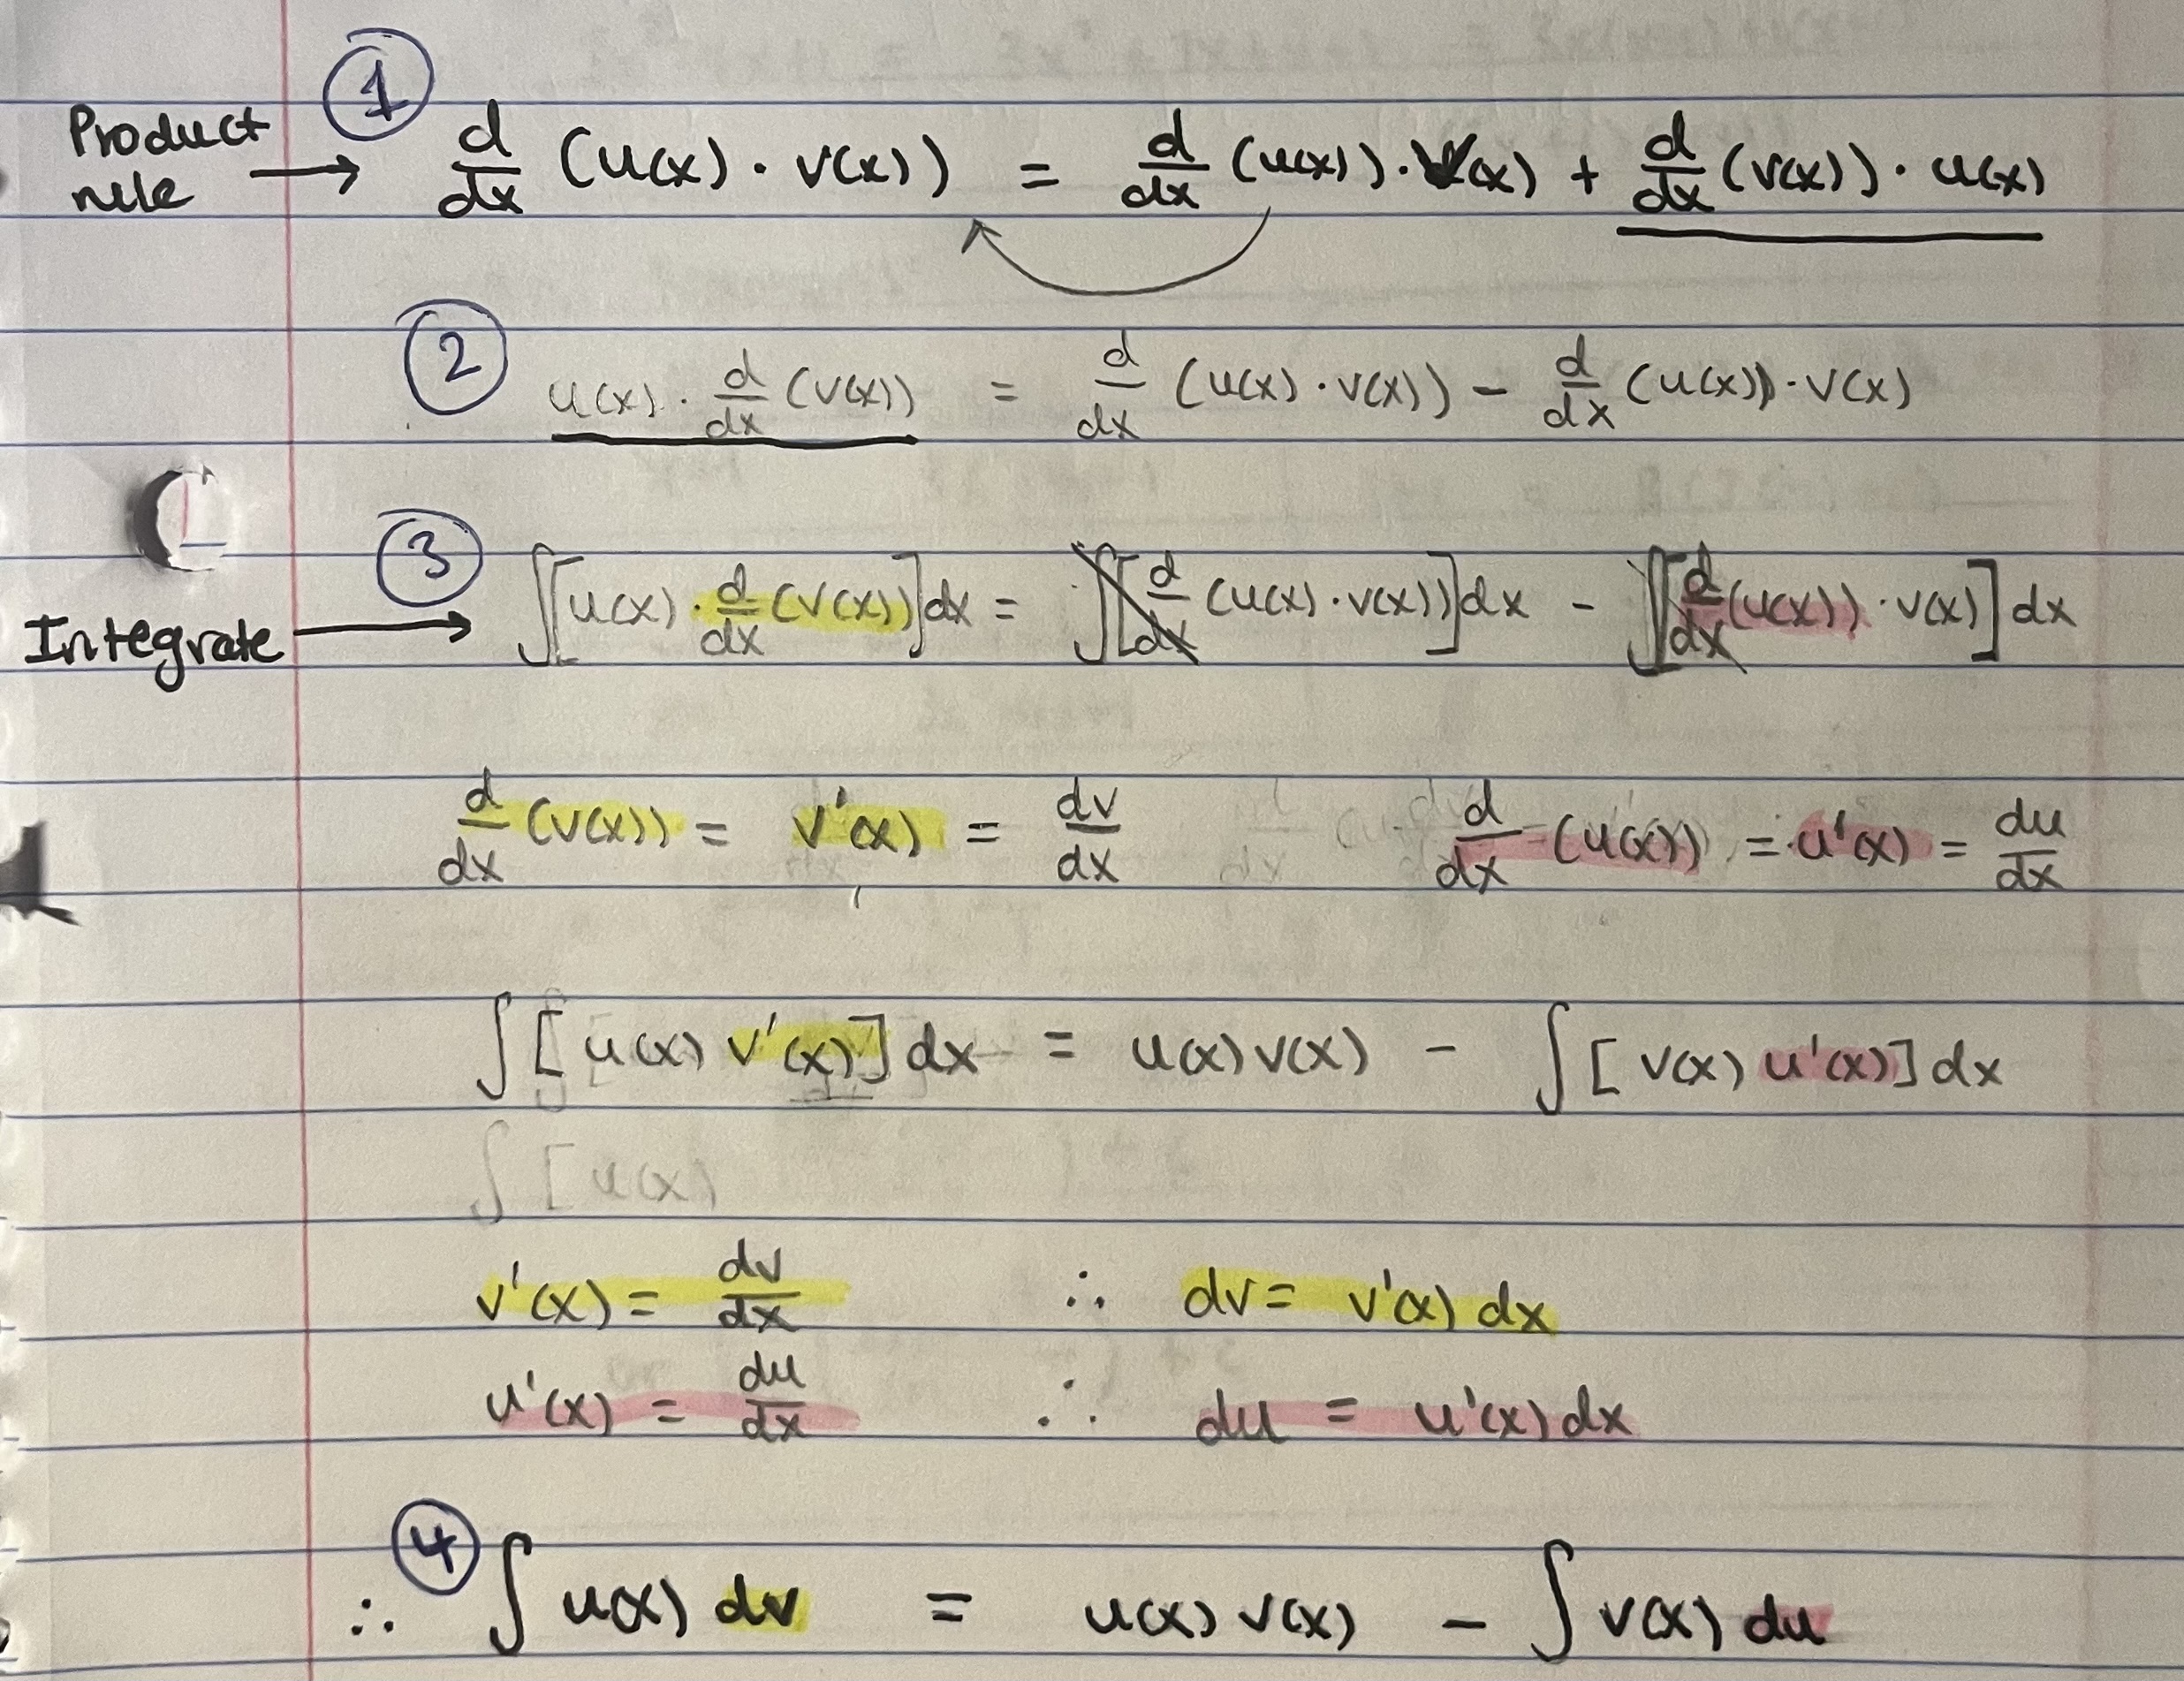 Product rule → ① d/dx (u(x) · v(x)) = d/dx (u(x)) · v(x) + d/dx (v(x)) · u(x)
② u(x) · d/dx (v(x)) = d/dx (u(x) · v(x)) - d/dx (u(x)) · v(x)
Integrate → ③ ∫[u(x) · d/dx (v(x))]dx = ∫[d/dx (u(x) · v(x))]dx - ∫[d/dx (u(x)) · v(x)]dx
d/dx (v(x)) = v'(x) = dv/dx d/dx (u(x)) = u'(x) = du/dx
∫[u(x) v'(x)]dx = u(x) v(x) - ∫[v(x) u'(x)]dx
∫[u(x)
v'(x) = dv/dx ∴ dv = v'(x) dx
u'(x) = du/dx ∴ du = u'(x) dx
∴ ④ ∫ u(x) dv = u(x) v(x) - ∫ v(x) du